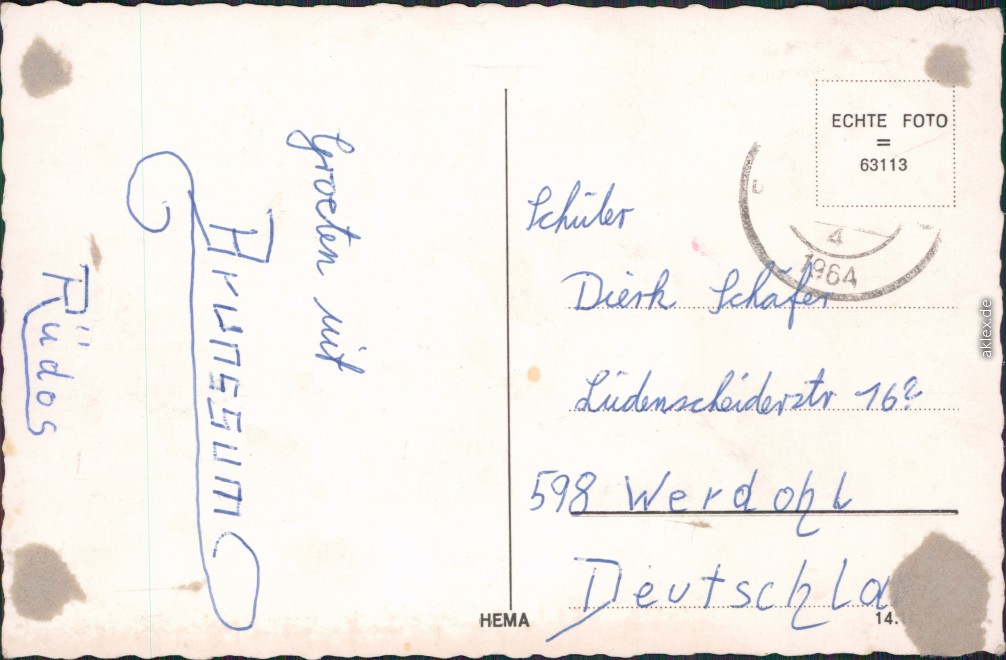 Groeten uit
Brunssum
Rüdos
ECHTE FOTO
=
63113
4
1964
Schüler
Dierk Schäfer
Lüdenscheiderstr 16?
598 Werdohl
Deutschla
HEMA
14.
aklex.de